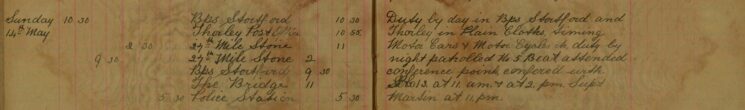 Sunday 10 30 Bps Stortford 10 30 Duty by day in Bps Stortford and
14th May Thorley Post Office 10 55 Thorley in Plain Clothes timing
2 30 27th Mile Stone 11 Motor Cars & Motor Cycles & duty by
9 30 27th Mile Stone 2 night patrolled No 5 Beat attended
Bps Stortford 9 30 conference point, conferred with
The Bridge 11 13. at 11. am & at 2. pm Supt
5 30 Police Station 5 30 Martin at 11 pm